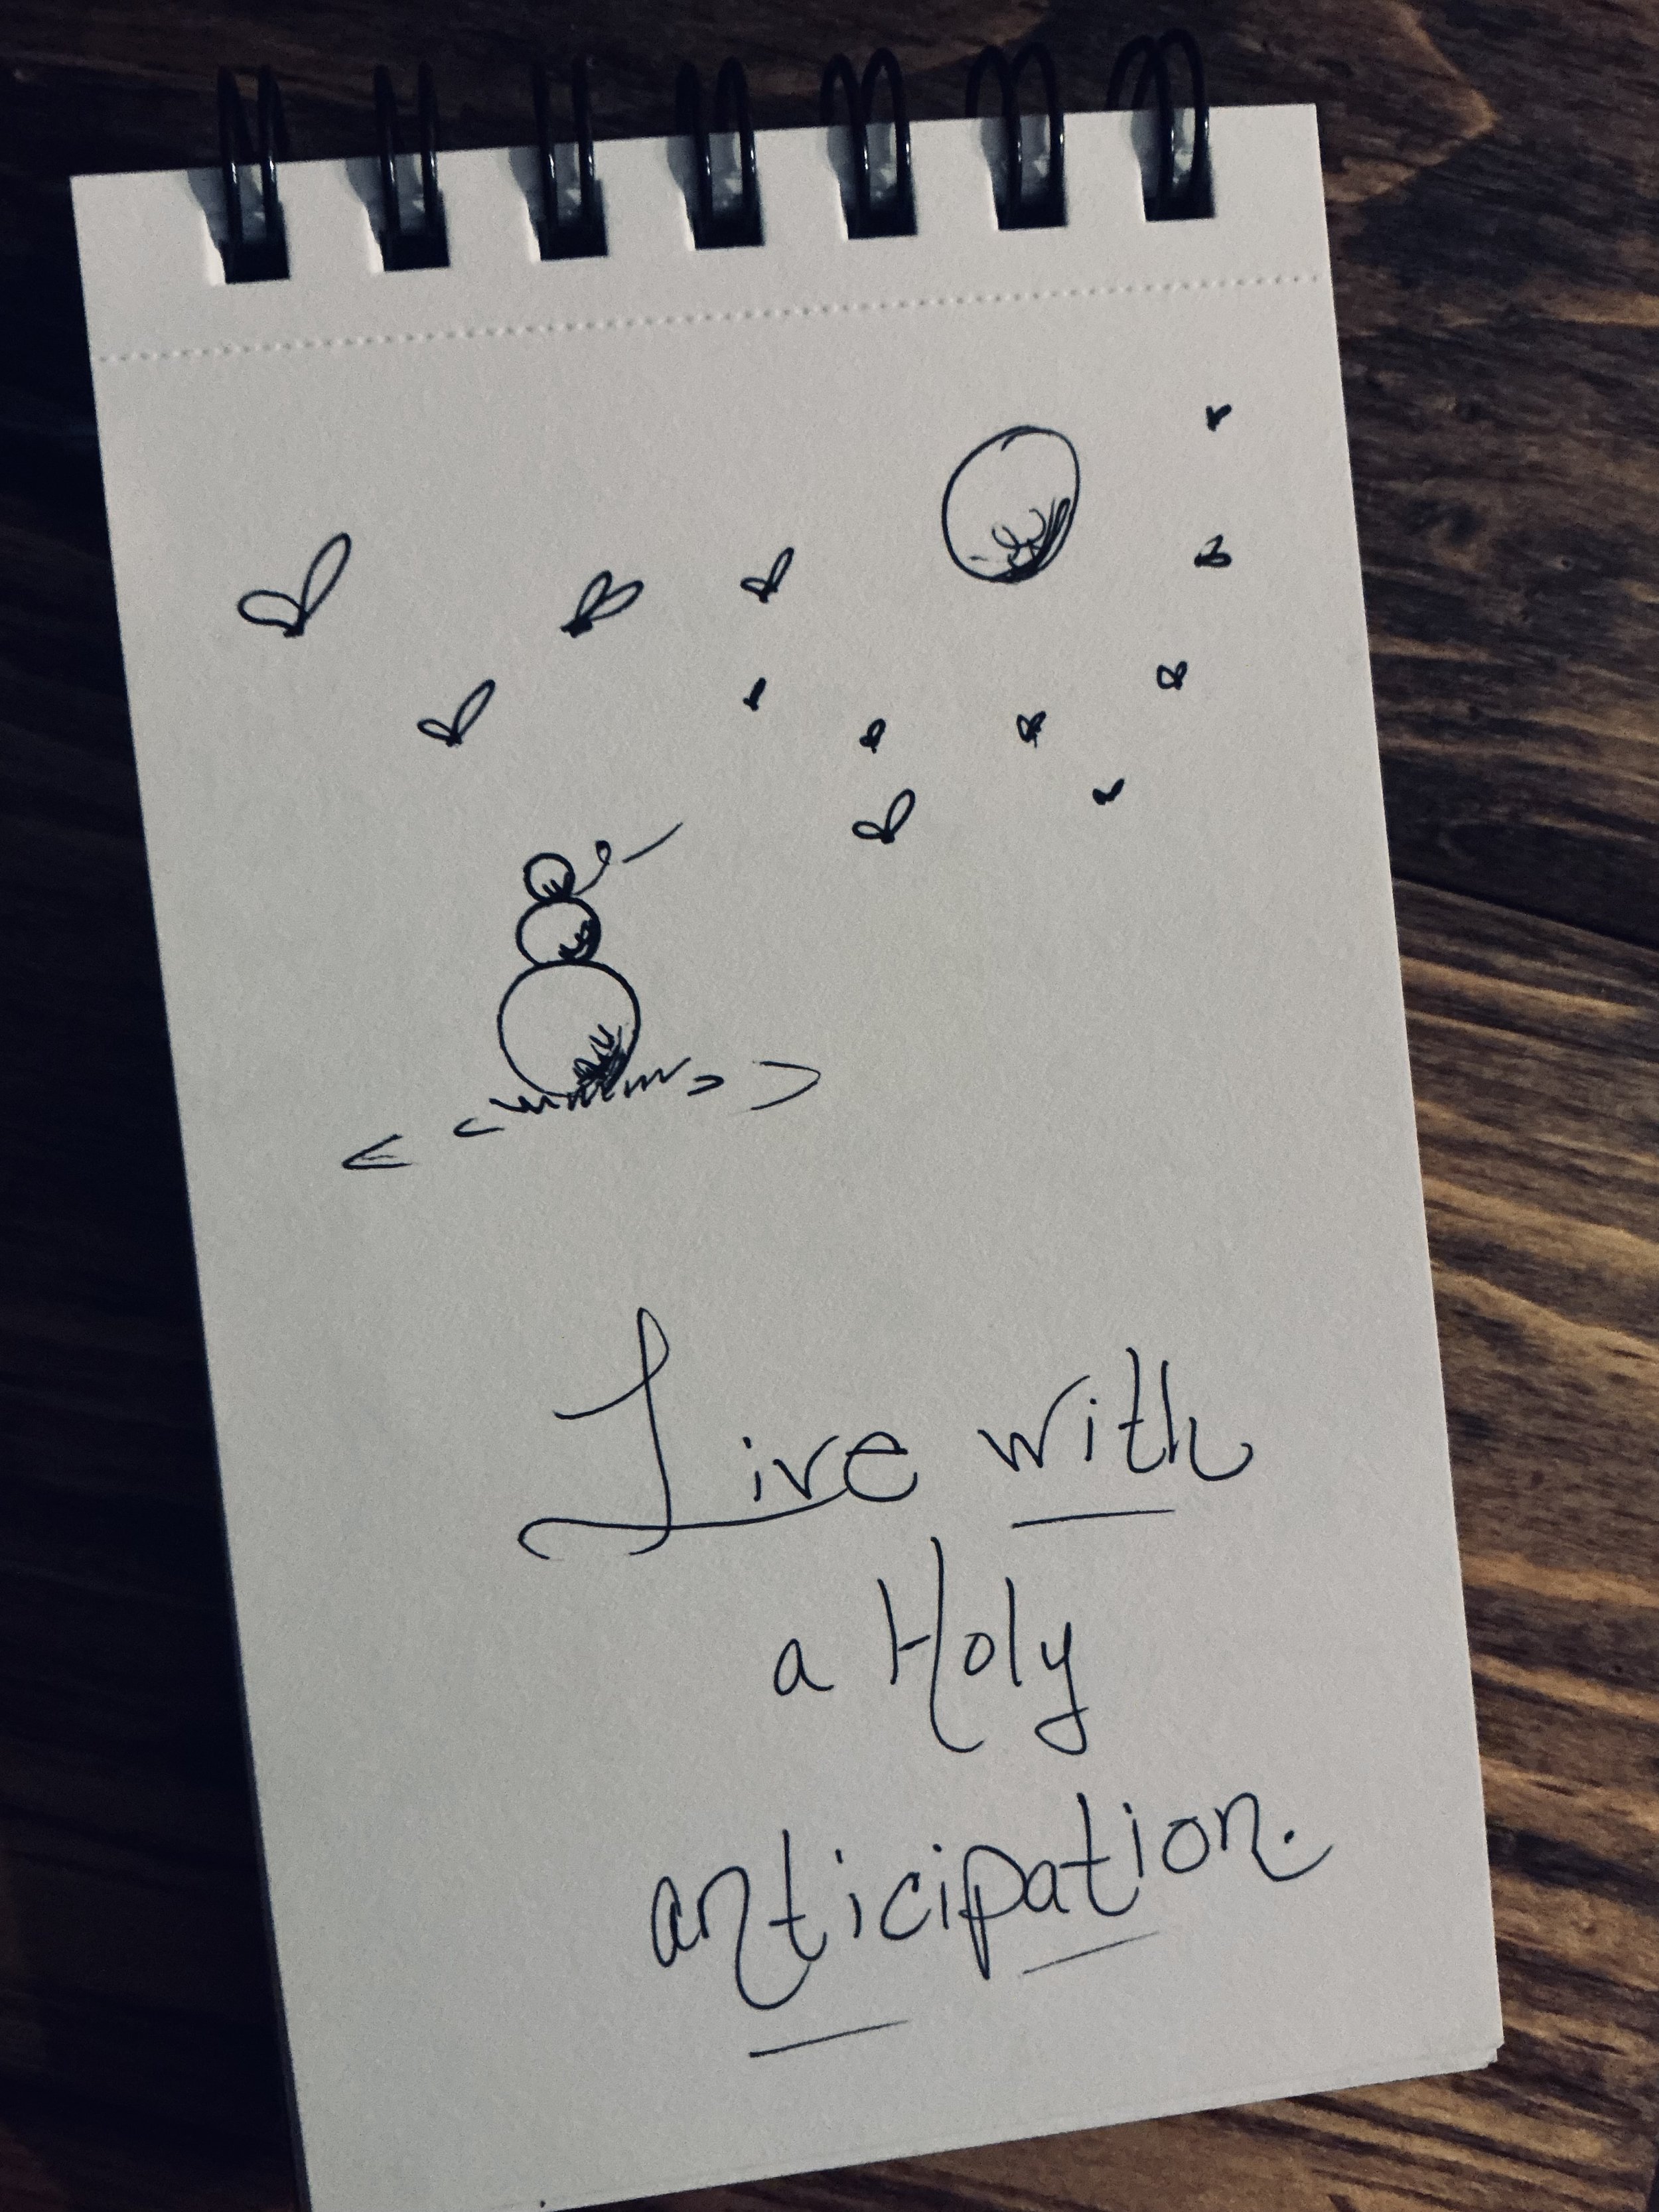 Live with
a Holy
anticipation.